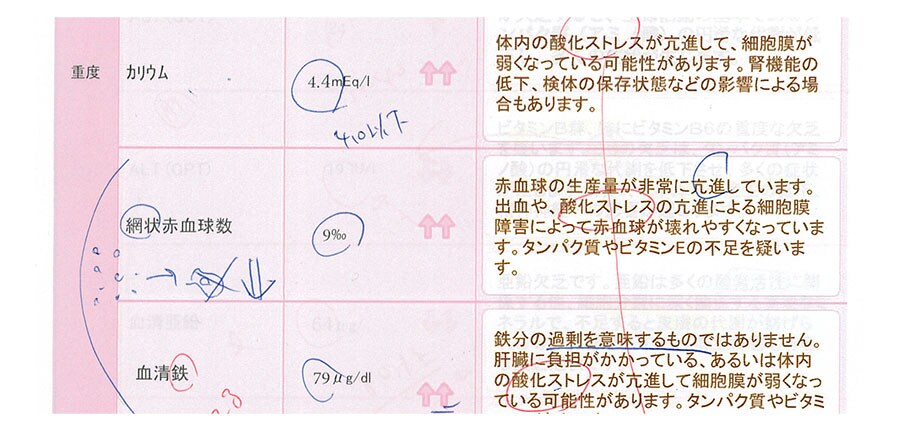 体内の酸化ストレスが亢進して、細胞膜が
弱くなっている可能性があります。腎機能の
低下、検体の保存状態などの影響による場
合もあります。
重度 カリウム 4.4mEq/l
4.0以下
赤血球の生産量が非常に亢進しています。
出血や、酸化ストレスの亢進による細胞膜
障害によって赤血球が壊れやすくなっていま
す。タンパク質やビタミンEの不足を疑いま
す。
網状赤血球数 9‰
鉄分の過剰を意味するものではありません。
肝臓に負担がかかっている、あるいは体内
の酸化ストレスが亢進して細胞膜が弱くなっ
ている可能性があります。タンパク質やビタミ
血清鉄 79μg/dl